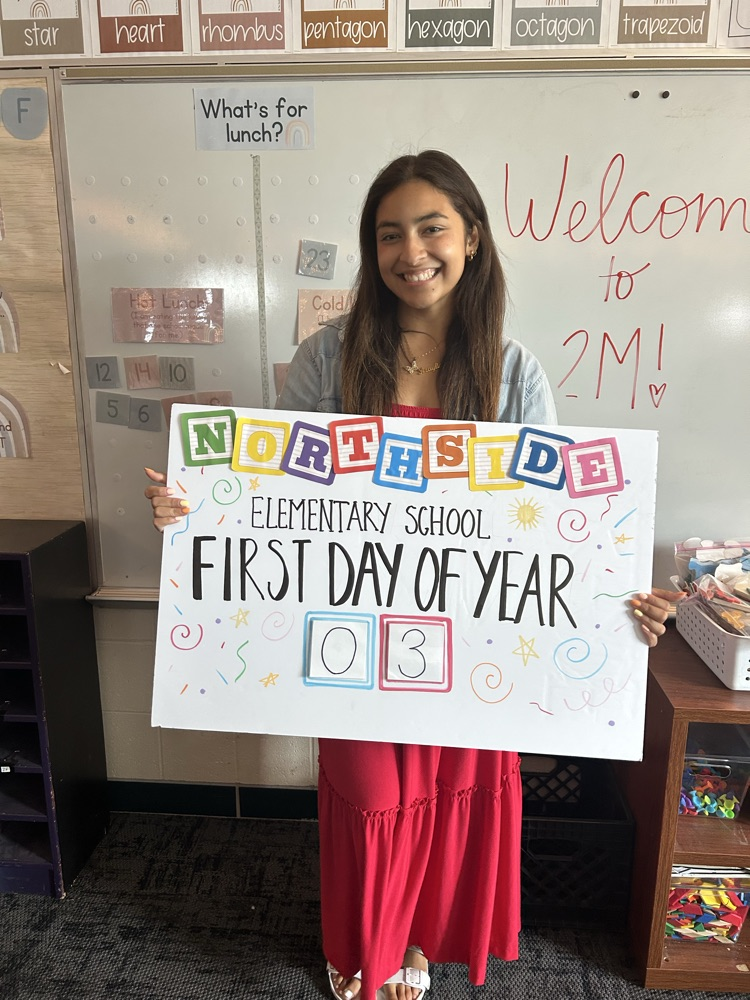 star heart rhombus pentagon hexagon octagon trapezoid
F
What's for
lunch?
Welcom
to
2M!
23
Hot Lunch
Cold
12 14 10
5 6
NORTHSIDE
ELEMENTARY SCHOOL
FIRST DAY OF YEAR
03